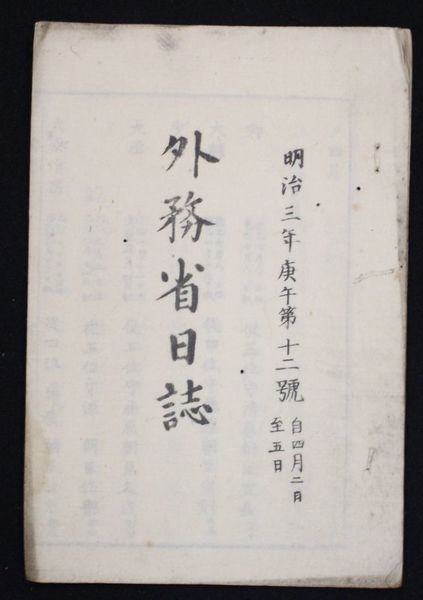 明治三年庚午第十二號
自四月二日
至五日
外務省日誌